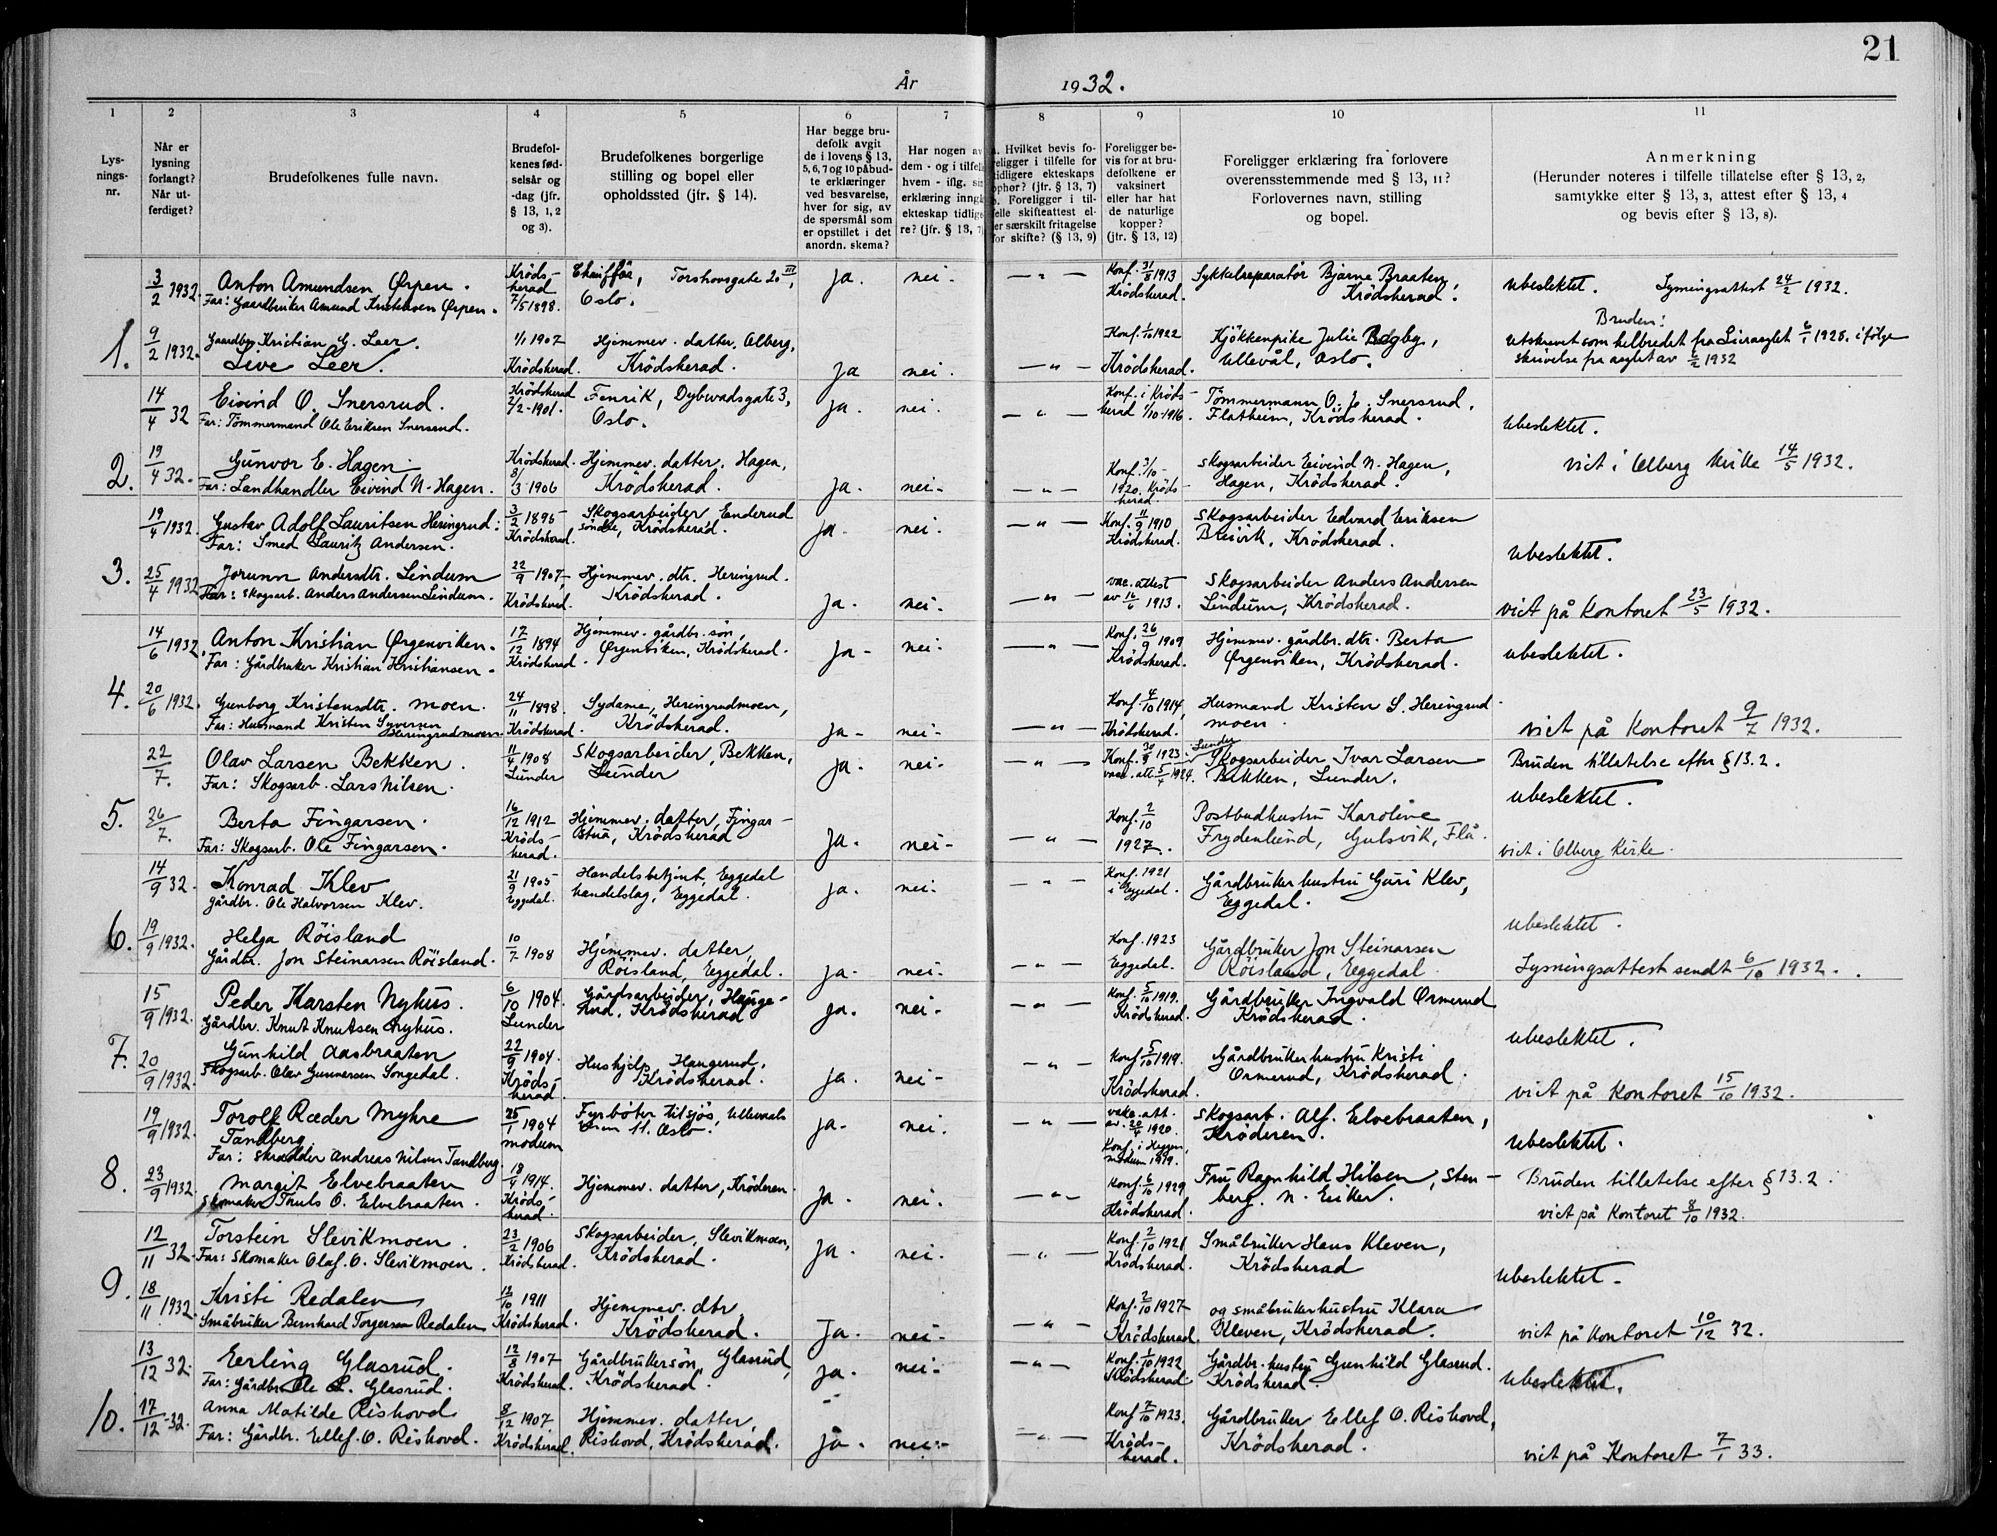 21
År 1932.
1
Lys-
nings-
nr.
2
Når er
lysning
forlangt?
Når ut-
ferdiget?
3
Brudefolkenes fulle navn.
4
Brudefol-
kenes fød-
selsår og
-dag (jfr.
§ 13, 1, 2
og 3).
5
Brudefolkenes borgerlige
stilling og bopel eller
opholdssted (jfr. § 14).
6
Har begge bru-
defolk avgit
de i lovens § 13,
5, 6, 7 og 10 påbud-
te erklæringer
ved besvarelse,
hver for sig, av
de spørsmål som
er opstillet i det
anordn. skema?
7
Har nogen av
dem - og i tilfelle
hvem - iflg. sin
erklæring inngå
ekteskap tidlige-
re? (jfr. § 13, 7)
8
a. Hvilket bevis fo-
religger i tilfelle for
tidligere ekteskaps
ophør? (jfr. § 13, 7)
b. Foreligger i til-
felle skifteattest el-
er særskilt fritagelse
for skifte? (§ 13, 9)
9
Foreligger be-
vis for at bru-
defolkene er
vaksinert
eller har hat
de naturlige
kopper?
(jfr. § 13, 12)
10
Foreligger erklæring fra forlovere
overensstemmende med § 13, 11?
Forlovernes navn, stilling
og bopel.
11
Anmerkning
(Herunder noteres i tilfelle tillatelse efter § 13, 2,
samtykke efter § 13, 3, attest efter § 13, 4
og bevis efter § 13, 8).
3/2 1932.
Anton Amundsen Ørpen.
Far: Gaardbruker Amund Kristensen Ørpen.
Kröds-
herad
7/5 1898.
Chauffør, Torshovsgate 20 III,
Oslo.
ja.
nei.
— " —
Konf. 31/8 1913
Krödsherad.
Sykkelreparatör Bjarne Braaten,
Krödsherad.
Ubeslektet. Lysningsattest 24/2 1932.
1.
9/2 1932.
Gaardbr. Kristian G. Leer.
Live Leer.
1/1 1907
Krödsherad.
Hjemmev. datter. Olberg,
Krödsherad.
ja
nei.
— " —
Konf. 1/10 1922
Krödsherad.
Kjökkenpike Julie Bagby,
Ullevål, Oslo.
Bruden:
Utskrevet som helbredet fra Lieraaglet 6/1 1928. ifölge
skrivelse fra asylet av 5/2 1932
14/4 32
Eivind O. Snersrud.
Far: Tömmermand Ole Eriksen Snersrud.
Krödsherad
2/2-1901.
Fenrik, Dybwadsgate 3,
Oslo.
ja.
nei.
— " —
Konf. i Kröds-
herad 1/10-1916.
Tömmermann O. J. Snersrud,
Flatheim, Krödsherad.
Ubeslektet.
2.
19/4 32.
Gunvor E. Hagen.
Far: Landhandler Eivind N. Hagen.
Krödsherad.
8/3 1906
Hjemmev. datter, Hagen,
Krödsherad.
ja.
nei.
— " —
Konf. 3/10-
1920. Kröds-
herad.
Skogsarbeider Eivind N. Hagen,
Hagen, Krödsherad.
Viet i Olberg kirke 14/5 1932.
19/4 1932.
Gustav Adolf Lauritsen Heringrud:
Far: Smed Lauritz Andersen.
3/2 1895
Krödsherad.
Skogsarbeider Enderud
söndre, Krödsherad.
ja.
nei.
— " —
Konf. 11/9 1910
Krödsherad.
Skogsarbeider Edvard Eriksen
Breivik, Krödsherad.
Ubeslektet.
3.
25/4 1932.
Jorunn Andersdtr. Lindum
Far: Skogsarb. Anders Andersen Lindum.
22/9 1907,
Krödsherad.
Hjemmev. dtr. Heringrud.
Krödsherad.
ja.
nei.
— " —
vac. attest
av 16/6 1913.
Skogsarbeider Anders Andersen
Lindum, Krödsherad.
viet på kontoret 23/5 1932.
14/6 1932.
Anton Kristian Ørgenviken.
Far: Gårdbruker Kristian Kristiansen.
17/12 1894
Krödsherad.
Hjemmev. gårdbr. sön,
Ørgenviken, Krödsherad.
ja.
nei.
— " —
Konf. 26/9 1909
Krödsherad.
Hjemmev. gårdbr. dtr. Berta
Ørgenviken, Krödsherad.
ubeslektet.
4.
20/6 1932.
Gunborg Kristensdtr. Moen.
Far: Husmand Kristen Syversen
Heringrudmoen
24/11 1898.
Krödsherad.
Sydame, Heringrudmoen,
Krödsherad.
ja.
nei.
— " —
Konf. 4/10 1914,
Krödsherad.
Husmand Kristen S. Heringrud-
moen.
viet på kontoret 9/7 1932.
22/7.
Olav Larsen Bekken.
Far: Skogsarb. Lars Nilsen.
11/4 1908
Lunder
Skogsarbeider, Bekken,
Lunder
ja.
nei.
— " —
Konf. 30/9 1923 Lunder
vac. att. 5/4 1924.
Skogsarbeider Ivar Larsen
Bekken, Lunder.
Bruden tillatelse efter § 13.2.
Ubeslektet.
5.
26/7.
Berta Fingarsen.
Far: Skogsarb. Ole Fingarsen.
16/12 1912
Kröds-
herad.
Hjemmev. datter, Fingar-
stua, Krödsherad
ja.
nei.
— " —
Konf. 2/10
1927.
Postbudhustru Karoline
Frydenlund, Gulsvik, Flå.
viet i Olberg kirke.
14/9 32.
Konrad Klev
Gårdbr. Ole Halvorsen Klev.
21/9 1905
Eggedal.
Handelsbetjent, Eggedal
handelslag, Eggedal.
ja.
nei.
— " —
Konf. 1921
i Eggedal.
Gårdbrukerhustru Guri Klev,
Eggedal.
Ubeslektet.
6.
19/9 1932.
Helga Röisland
Gårdbr. Jon Steinarsen Röisland.
10/7 1908
Hjemmev. datter,
Röisland, Eggedal.
ja.
nei.
— " —
Konf. 1923
Eggedal.
Gårdbruker Jon Steinarsen
Röisland, Eggedal
Lysningsattest sendt 6/10 1932.
15/9 1932.
Peder Karsten Nyhus.
Gårdbr. Knut Knutsen Nyhus.
6/10 1904.
Lunder
Gårdsarbeider, Hauge-
rud, Krödsherad
ja.
nei.
— " —
Konf. 5/10 1919.
Krödsherad.
Gårdbruker Ingvald Ormerud
Krödsherad.
Ubeslektet.
7.
20/9 1932.
Gunhild Aasbraaten
Skogsarb. Olav Gunnarsen Songedal.
22/9 1904.
Kröds-
herad.
Hushjelp Haugerud,
Krödsherad.
ja.
nei.
— " —
Konf. 5/10 1919.
Krödsherad.
Gårdbrukerhustru Kristi
Ormerud, Krödsherad.
viet på kontoret 15/10 1932.
19/9 1932.
Torolf Ræder Myhre
Tandberg.
Far: Skrædder Andreas Nilsen Tandberg.
25/1 1904
Modum
Fyrböter tilsjös, Ullevaals-
veien 11. Oslo.
ja.
nei.
— " —
vakc. att.
av 20/4 1920.
Konf. i Heggen,
Modum 1919.
Skogsarb. Alf. Elvebraaten,
Kröderen.
Ubeslektet.
8.
23/9 1932.
Margit Elvebraaten
Skomaker Truls O. Elvebraaten.
18/4 1914.
Kröds-
herad.
Hjemmev. datter, Kröderen.
ja.
nei.
— " —
Konf. 6/10 1929
Krödsherad.
Fru Ragnhild Hilsen, Sten-
berg. N. Eiker.
Bruden tillatelse efter § 13.2.
viet på kontoret 8/10 1932.
12/11 32.
Torstein Slevikmoen.
Far: Skomaker Olaf. O. Slevikmoen.
23/2 1906
Krödsherad.
Skogsarbeider, Slevikmoen,
Krödsherad.
ja.
nei.
— " —
Konf. 2/10 1921
Krödsherad.
Småbruker Hans Kleven,
Krödsherad
Ubeslektet.
9.
18/11 1932.
Kristi Redalen
Småbruker Bernhard Torgersen Redalen
12/10 1911
Krödsherad.
Hjemmev. dtr
Krödsherad.
Ja.
nei.
— " —
Konf. 2/10 1927
Krödsherad.
og småbrukerhustru Klara
Kleven, Krödsherad.
viet på kontoret 10/12 32.
13/12 32.
Eerling Glasrud.
Far: Gårdbr. Ole L. Glasrud.
12/8 1907
Krödsherad.
Gårdbrukersön, Glasrud,
Krödsherad.
ja.
nei.
— " —
Konf. 1/10 1922
Krödsherad.
Gårdbr. hustru Gunhild Glasrud.
Krödsherad.
Ubeslektet.
10.
17/12-32.
Anna Matilde Rishovd
Far: Gårdbr. Ellef. O. Rishovd.
8/12 1907
Krödsherad.
Hjemmev. datter,
Rishovd, Krödsherad.
ja.
nei.
— " —
Konf 7/10 1923.
Kröds-
herad.
Gårdbruker Ellef O. Rishovd,
Krödsherad.
viet på kontoret 7/1 33.